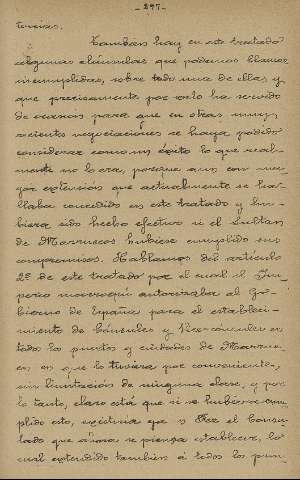 - 297 -
turias.
Tambien hay en este tratado
algunas cláusulas que podemos llamar
incumplidas, sobre todo una de ellas y
que precisamente por esto ha servido
de acicate para que en otras muy
recientes negociaciones se haya podido
considerar como un éxito lo que real-
mente no lo era, porque aun con ma-
yor extensión que actualmente se ha-
llaba concedido en este tratado y hu-
biera sido hecho efectivo si el Sultan
de Marruecos hubiese cumplido sus
compromisos. Hablamos del artículo
2º de este tratado por el cual el Im-
perio marroquí autorizaba al Go-
bierno de España para el estableci-
miento de Cónsules y Vicecónsules en
todos los puertos y ciudades de Marrue-
cos en que lo tuviera por conveniente,
sin limitación de ninguna clase, y por
lo tanto, claro está que si se hubiese cum-
plido esto, existiria que Fez el Consu-
lado que ahora se piensa establecer, lo
cual extendido tambien á todos los pun-